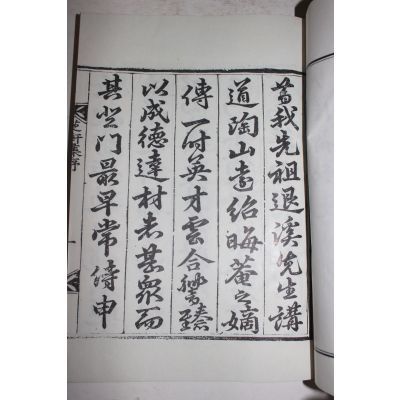 昔我先祖退溪先生講
道陶山書紹晦菴之嫡
傳一時英才雲合響臻
以成德達材者甚衆而
其登門最早常侍申
芝軒集序
一